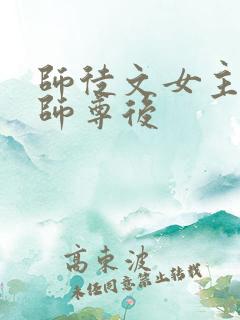 師徒文女主
師尊後
高東波
未經同意禁止轉載